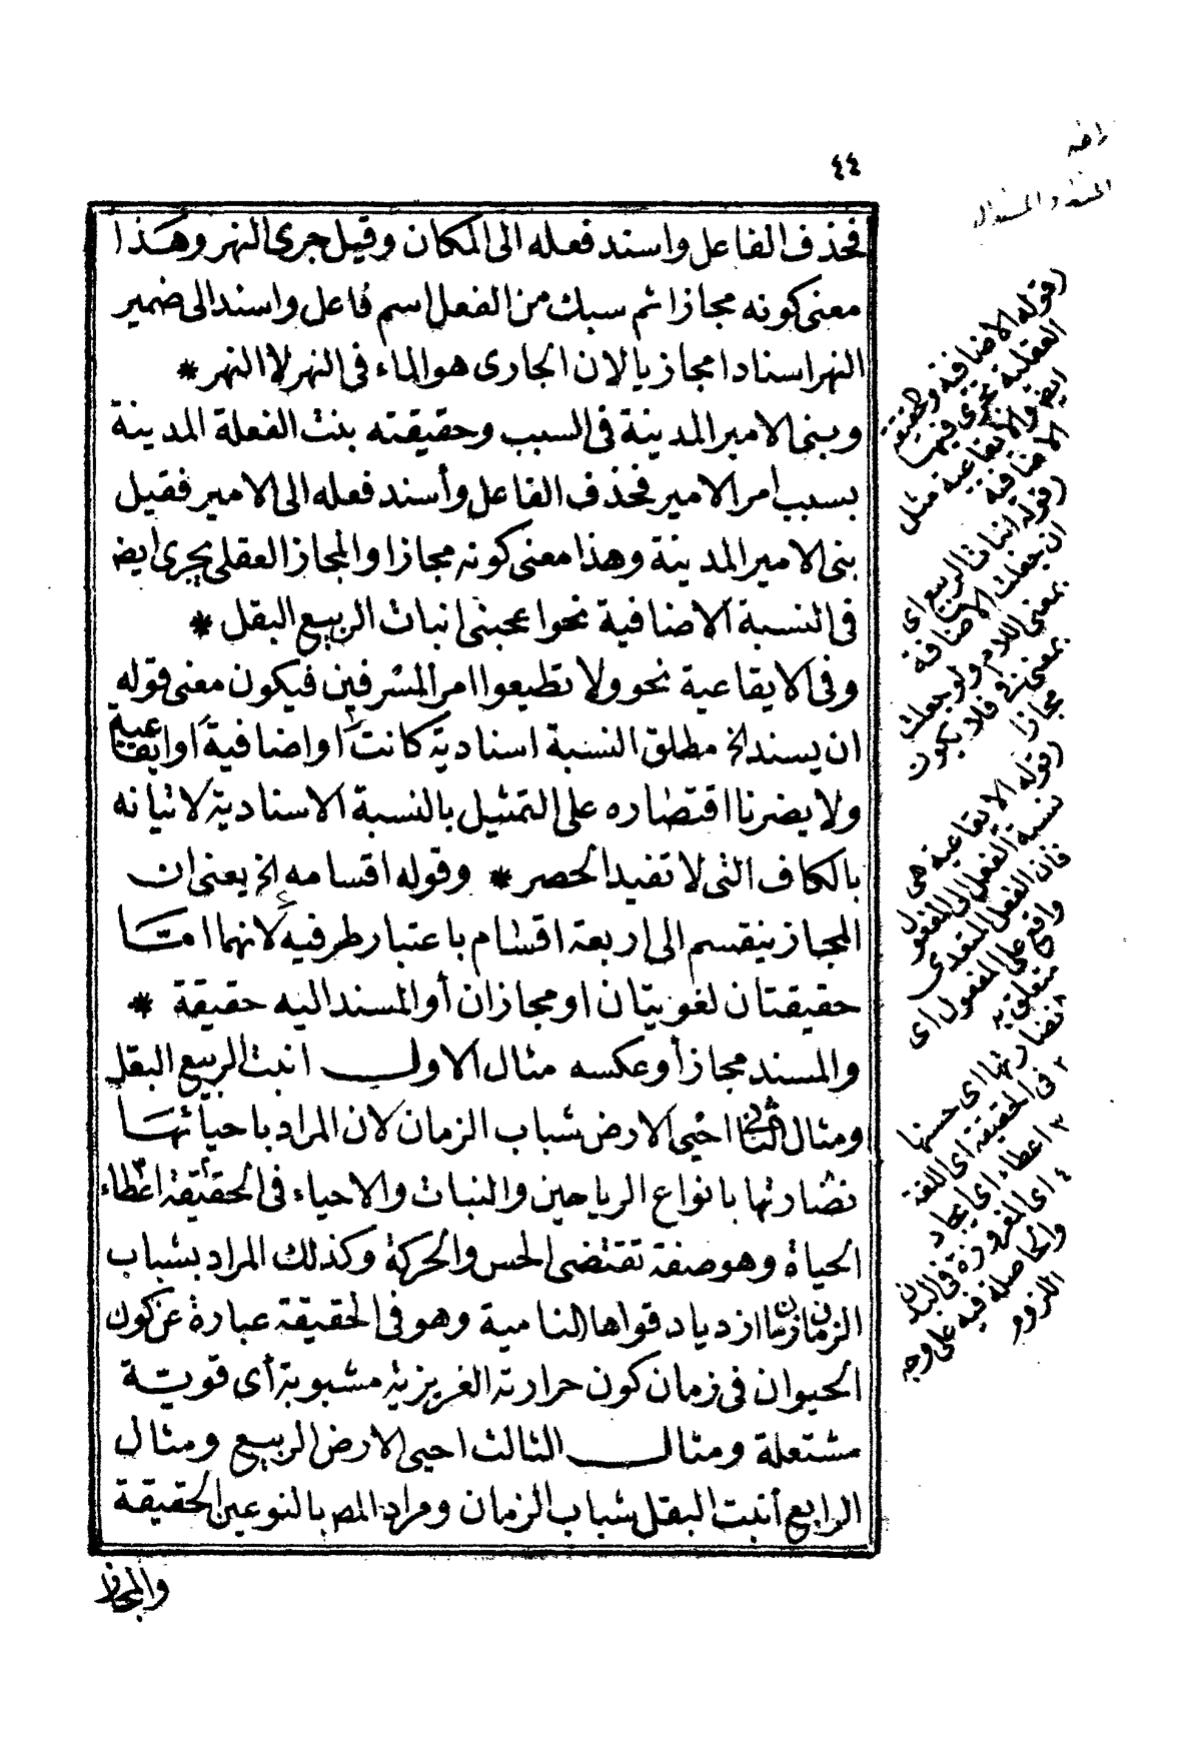 ٤٤
فحذف الفاعل واسند فعله الى المكان وقيل جرى النهر وهذا
معنى كونه مجازا ثم سبك من الفعل اسم فاعل واسند الى ضمير
النهر اسنادا مجازيا لان الجارى هو الماء فى النهر لا النهر *
وبنى الامير المدينة فى السبب وحقيقته بنت الفعلة المدينة
بسبب امر الامير فحذف الفاعل وأسند فعله الى الامير فقيل
بنى الامير المدينة وهذا معنى كونه مجازا والمجاز العقلى يجرى ايض
فى النسبة الاضافية نحو اعجبنى انبات الربيع البقل *
وفى الايقاعية نحو ولا تطيعوا امر المسرفين فيكون معنى قوله
ان يسند الخ مطلق النسبة اسنادية كانت او اضافية او ايقاعية
ولا يضرنا اقتصاره على التمثيل بالنسبة الاسنادية لاتيانه
بالكاف التى لا تفيد الحصر * وقوله اقسامه الخ يعنى ان
المجاز ينقسم الى اربعة اقسام باعتبار طرفيه لانهما امّا
حقيقتان لغويتان او مجازان أو المسند اليه حقيقة *
والمسند مجاز أو عكسه مثال الاول انبت الربيع البقل
ومثال الثانى احيى الارض شباب الزمان لان المراد باحيائها
نضارتها بانواع الرياحين والنبات والاحياء فى الحقيقة اعطاء
الحياة وهو صفة تقتضى الحس والحركة وكذلك المراد بشباب
الزمان زمان ازدياد قواها النامية وهو فى الحقيقة عبارة عن كون
الحيوان فى زمان كون حرارته الغريزية مشبوبة أى قويّة
مشتعلة ومثال الثالث احيى الارض الربيع ومثال
الرابع أنبت البقل شباب الزمان ومراد المص بالنوعين الحقيقة
والمجاز
(قوله الاضافية وحقيقة
العقلية تجرى فيهما
ايض والايقاعية مثل
الاضافية
(قوله انبات الربيع اى
ان جعلت الاضافة
بمعنى اللام ولو جعلت
بمعنى فى فلا يكون
مجازا
(قوله الايقاعية هى
نسبة الفعل الى المفعول
فان الفعل المتعدى
واقع على المفعول اى
متعلق به
نضارتها اى حسنها
٢ فى الحقيقة اى اللغة
٣ اعطاء اى ايجاد
٤ اى المغروزة فى البدن
والحاصلة فيه على وجه
اللزوم